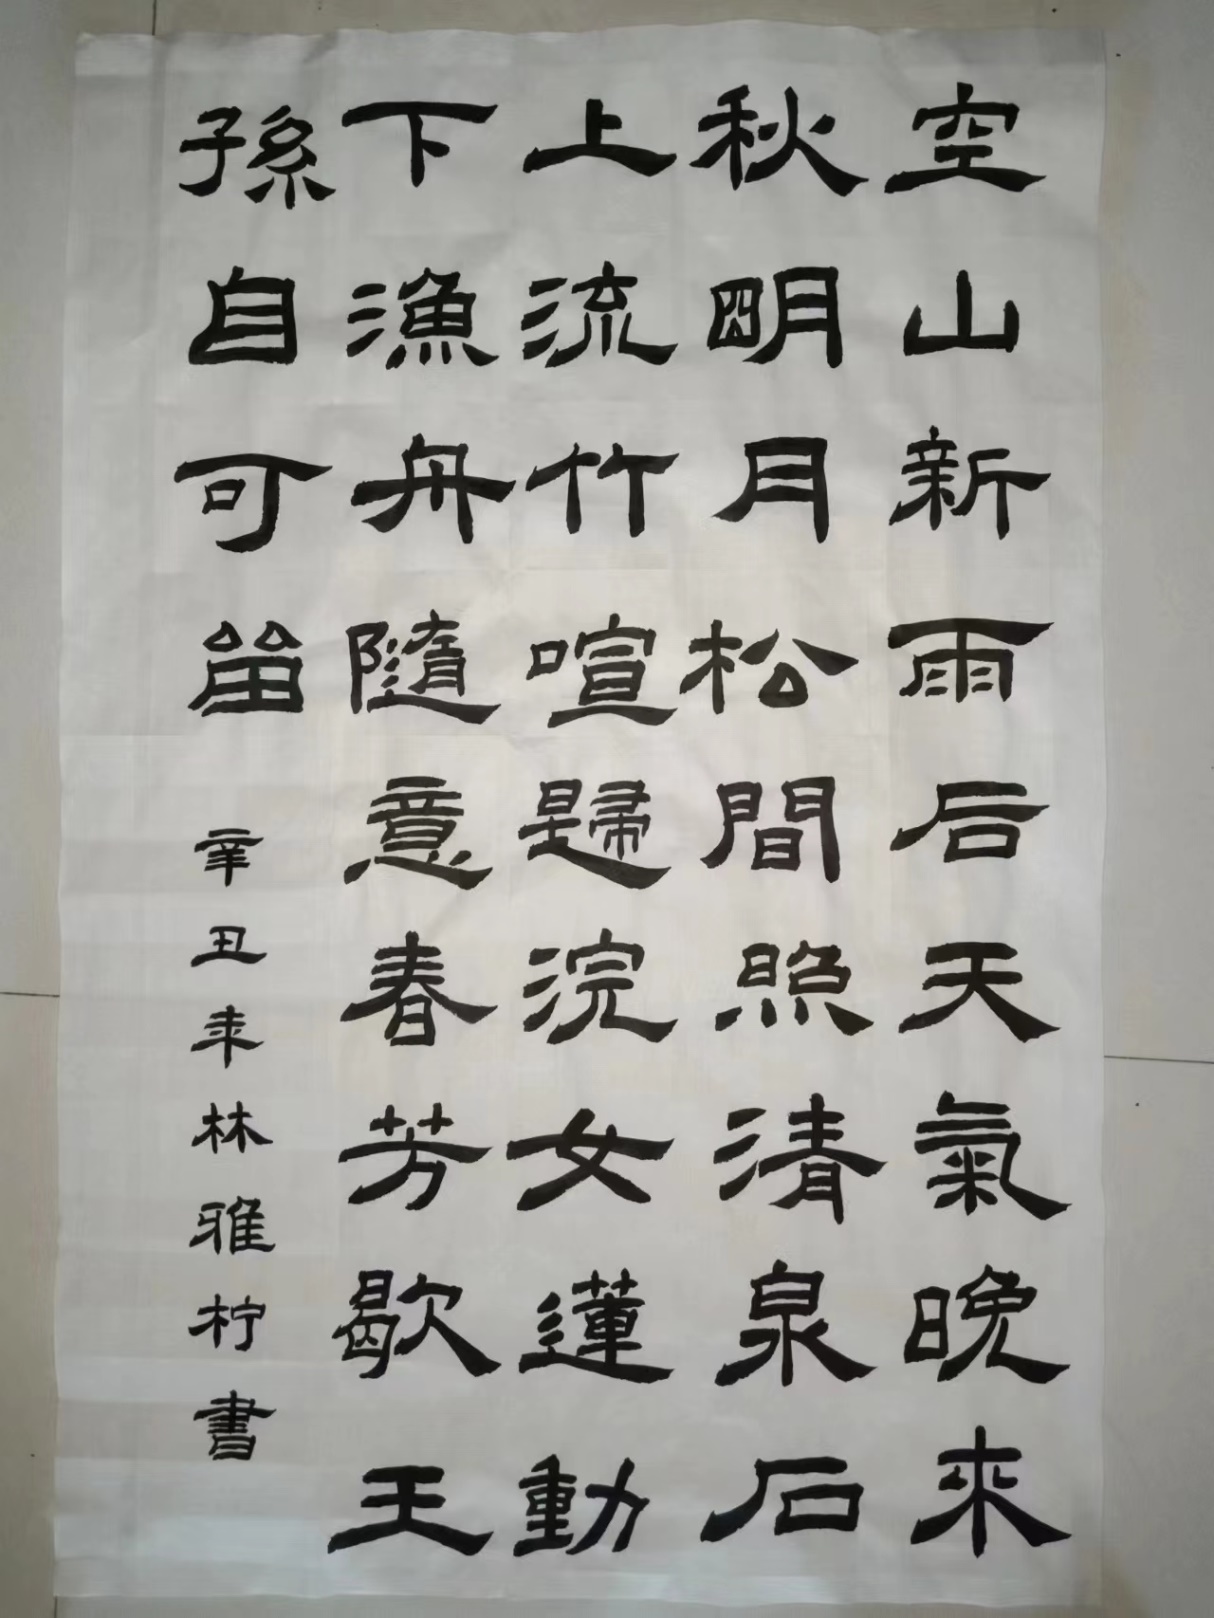 空山新雨后天氣晚來
秋明月松間照清泉石
上流竹喧歸浣女蓮動
下漁舟隨意春芳歇王
孫自可留
辛丑年林雅柠書